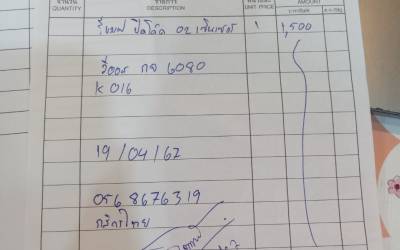 จำนวน รายการ AMOUNT
QUANTITY DESCRIPTION UNIT PRICE
รีแมพ ปิดโค้ด O2 เซ็นเซอร์ 1,500
วีออส กจ 6080
K016
19/04/62
056 8676319
กสิกรไทย